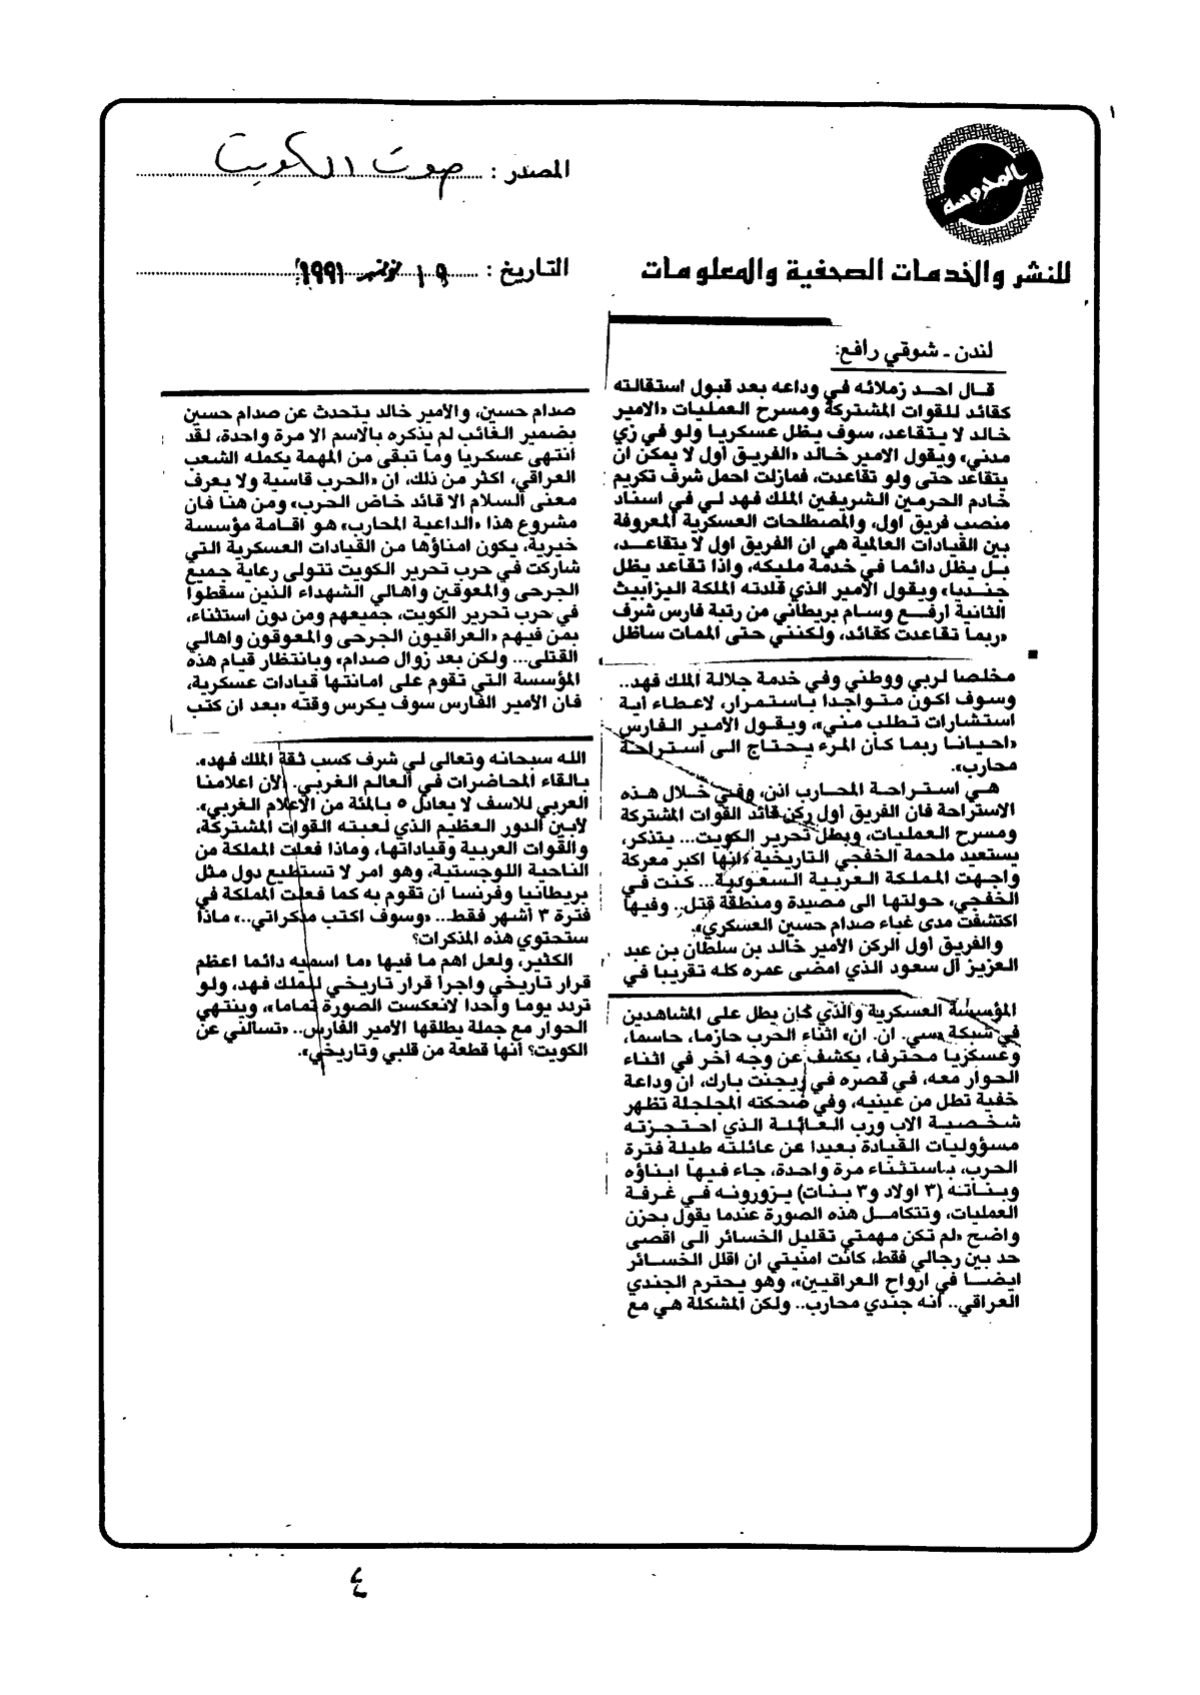 المدروسة
للنشر والخدمات الصحفية والمعلومات
المصدر : صوت الكويت
التاريخ : ١٩ نوفمبر ١٩٩١
لندن ـ شوقي رافع:
قال احد زملائه في وداعه بعد قبول استقالته
كقائد للقوات المشتركة ومسرح العمليات «الامير
خالد لا يتقاعد، سوف يظل عسكريا ولو في زي
مدني» ويقول الامير خالد «الفريق أول لا يمكن ان
يتقاعد حتى ولو تقاعدت، فمازلت احمل شرف تكريم
خادم الحرمين الشريفين الملك فهد لي في اسناد
منصب فريق اول، والمصطلحات العسكرية المعروفة
بين القيادات العالمية هي ان الفريق اول لا يتقاعد،
بل يظل دائما في خدمة مليكه، واذا تقاعد يظل
جنديا» ويقول الامير الذي قلدته الملكة اليزابيث
الثانية ارفع وسام بريطاني من رتبة فارس شرف
«ربما تقاعدت كقائد، ولكنني حتى الممات ساظل
مخلصا لربي ووطني وفي خدمة جلالة الملك فهد..
وسوف اكون متواجدا باستمرار، لاعطاء اية
استشارات تطلب مني»، ويقول الامير الفارس
«احيانا ربما كان المرء يحتاج الى استراحة
محارب».
هي استراحة المحارب اذن، وفي خلال هذه
الاستراحة فان الفريق أول ركن قائد القوات المشتركة
ومسرح العمليات، وبطل تحرير الكويت... يتذكر،
يستعيد ملحمة الخفجي التاريخية «انها اكبر معركة
واجهت المملكة العربية السعودية... كنت في
الخفجي، حولتها الى مصيدة ومنطقة قتل.. وفيها
اكتشفت مدى غباء صدام حسين العسكري».
والفريق أول الركن الامير خالد بن سلطان بن عبد
العزيز آل سعود الذي امضى عمره كله تقريبا في
المؤسسة العسكرية والذي كان يطل على المشاهدين
في شبكة «سي. ان. ان» اثناء الحرب حازما، حاسما،
وعسكريا محترفا، يكشف عن وجه آخر في اثناء
الحوار معه، في قصره في ريجنت بارك، ان وداعة
خفية تطل من عينيه، وفي ضحكته المجلجلة تظهر
شخصية الاب ورب العائلة الذي احتجزته
مسؤوليات القيادة بعيدا عن عائلته طيلة فترة
الحرب، باستثناء مرة واحدة، جاء فيها ابناؤه
وبناته (٣ اولاد و٣ بنات) يزورونه في غرفة
العمليات، وتتكامل هذه الصورة عندما يقول بحزن
واضح «لم تكن مهمتي تقليل الخسائر الى اقصى
حد بين رجالي فقط، كانت امنيتي ان اقلل الخسائر
ايضا في ارواح العراقيين»، وهو يحترم الجندي
العراقي.. انه جندي محارب.. ولكن المشكلة هي مع
صدام حسين، والامير خالد يتحدث عن صدام حسين
بضمير الغائب لم يذكره بالاسم الا مرة واحدة، لقد
انتهى عسكريا وما تبقى من المهمة يكمله الشعب
العراقي، اكثر من ذلك، ان «الحرب قاسية ولا يعرف
معنى السلام الا قائد خاض الحرب» ومن هنا فان
مشروع هذا «الداعية المحارب» هو اقامة مؤسسة
خيرية، يكون امناؤها من القيادات العسكرية التي
شاركت في حرب تحرير الكويت تتولى رعاية جميع
الجرحى والمعوقين واهالي الشهداء الذين سقطوا
في حرب تحرير الكويت، جميعهم ومن دون استثناء،
بمن فيهم «العراقيون الجرحى والمعوقون واهالي
القتلى... ولكن بعد زوال صدام» وبانتظار قيام هذه
المؤسسة التي تقوم على امانتها قيادات عسكرية،
فان الامير الفارس سوف يكرس وقته «بعد ان كتب
الله سبحانه وتعالى لي شرف كسب ثقة الملك فهد».
بالقاء المحاضرات في العالم الغربي. «لان اعلامنا
العربي للاسف لا يعادل ٥ بالمئة من الاعلام الغربي».
لأبين الدور العظيم الذي لعبته القوات المشتركة،
والقوات العربية وقياداتها، وماذا فعلت المملكة من
الناحية اللوجستية، وهو امر لا تستطيع دول مثل
بريطانيا وفرنسا ان تقوم به كما فعلت المملكة في
فترة ٣ أشهر فقط... «وسوف اكتب مذكراتي..» ماذا
ستحتوي هذه المذكرات؟
الكثير، ولعل اهم ما فيها «ما اسميه دائما اعظم
قرار تاريخي واجرا قرار تاريخي للملك فهد، ولو
تردد يوما واحدا لانعكست الصورة تماما»، وينتهي
الحوار مع جملة يطلقها الأمير الفارس.. «تسالني عن
الكويت؟ أنها قطعة من قلبي وتاريخي».
٤